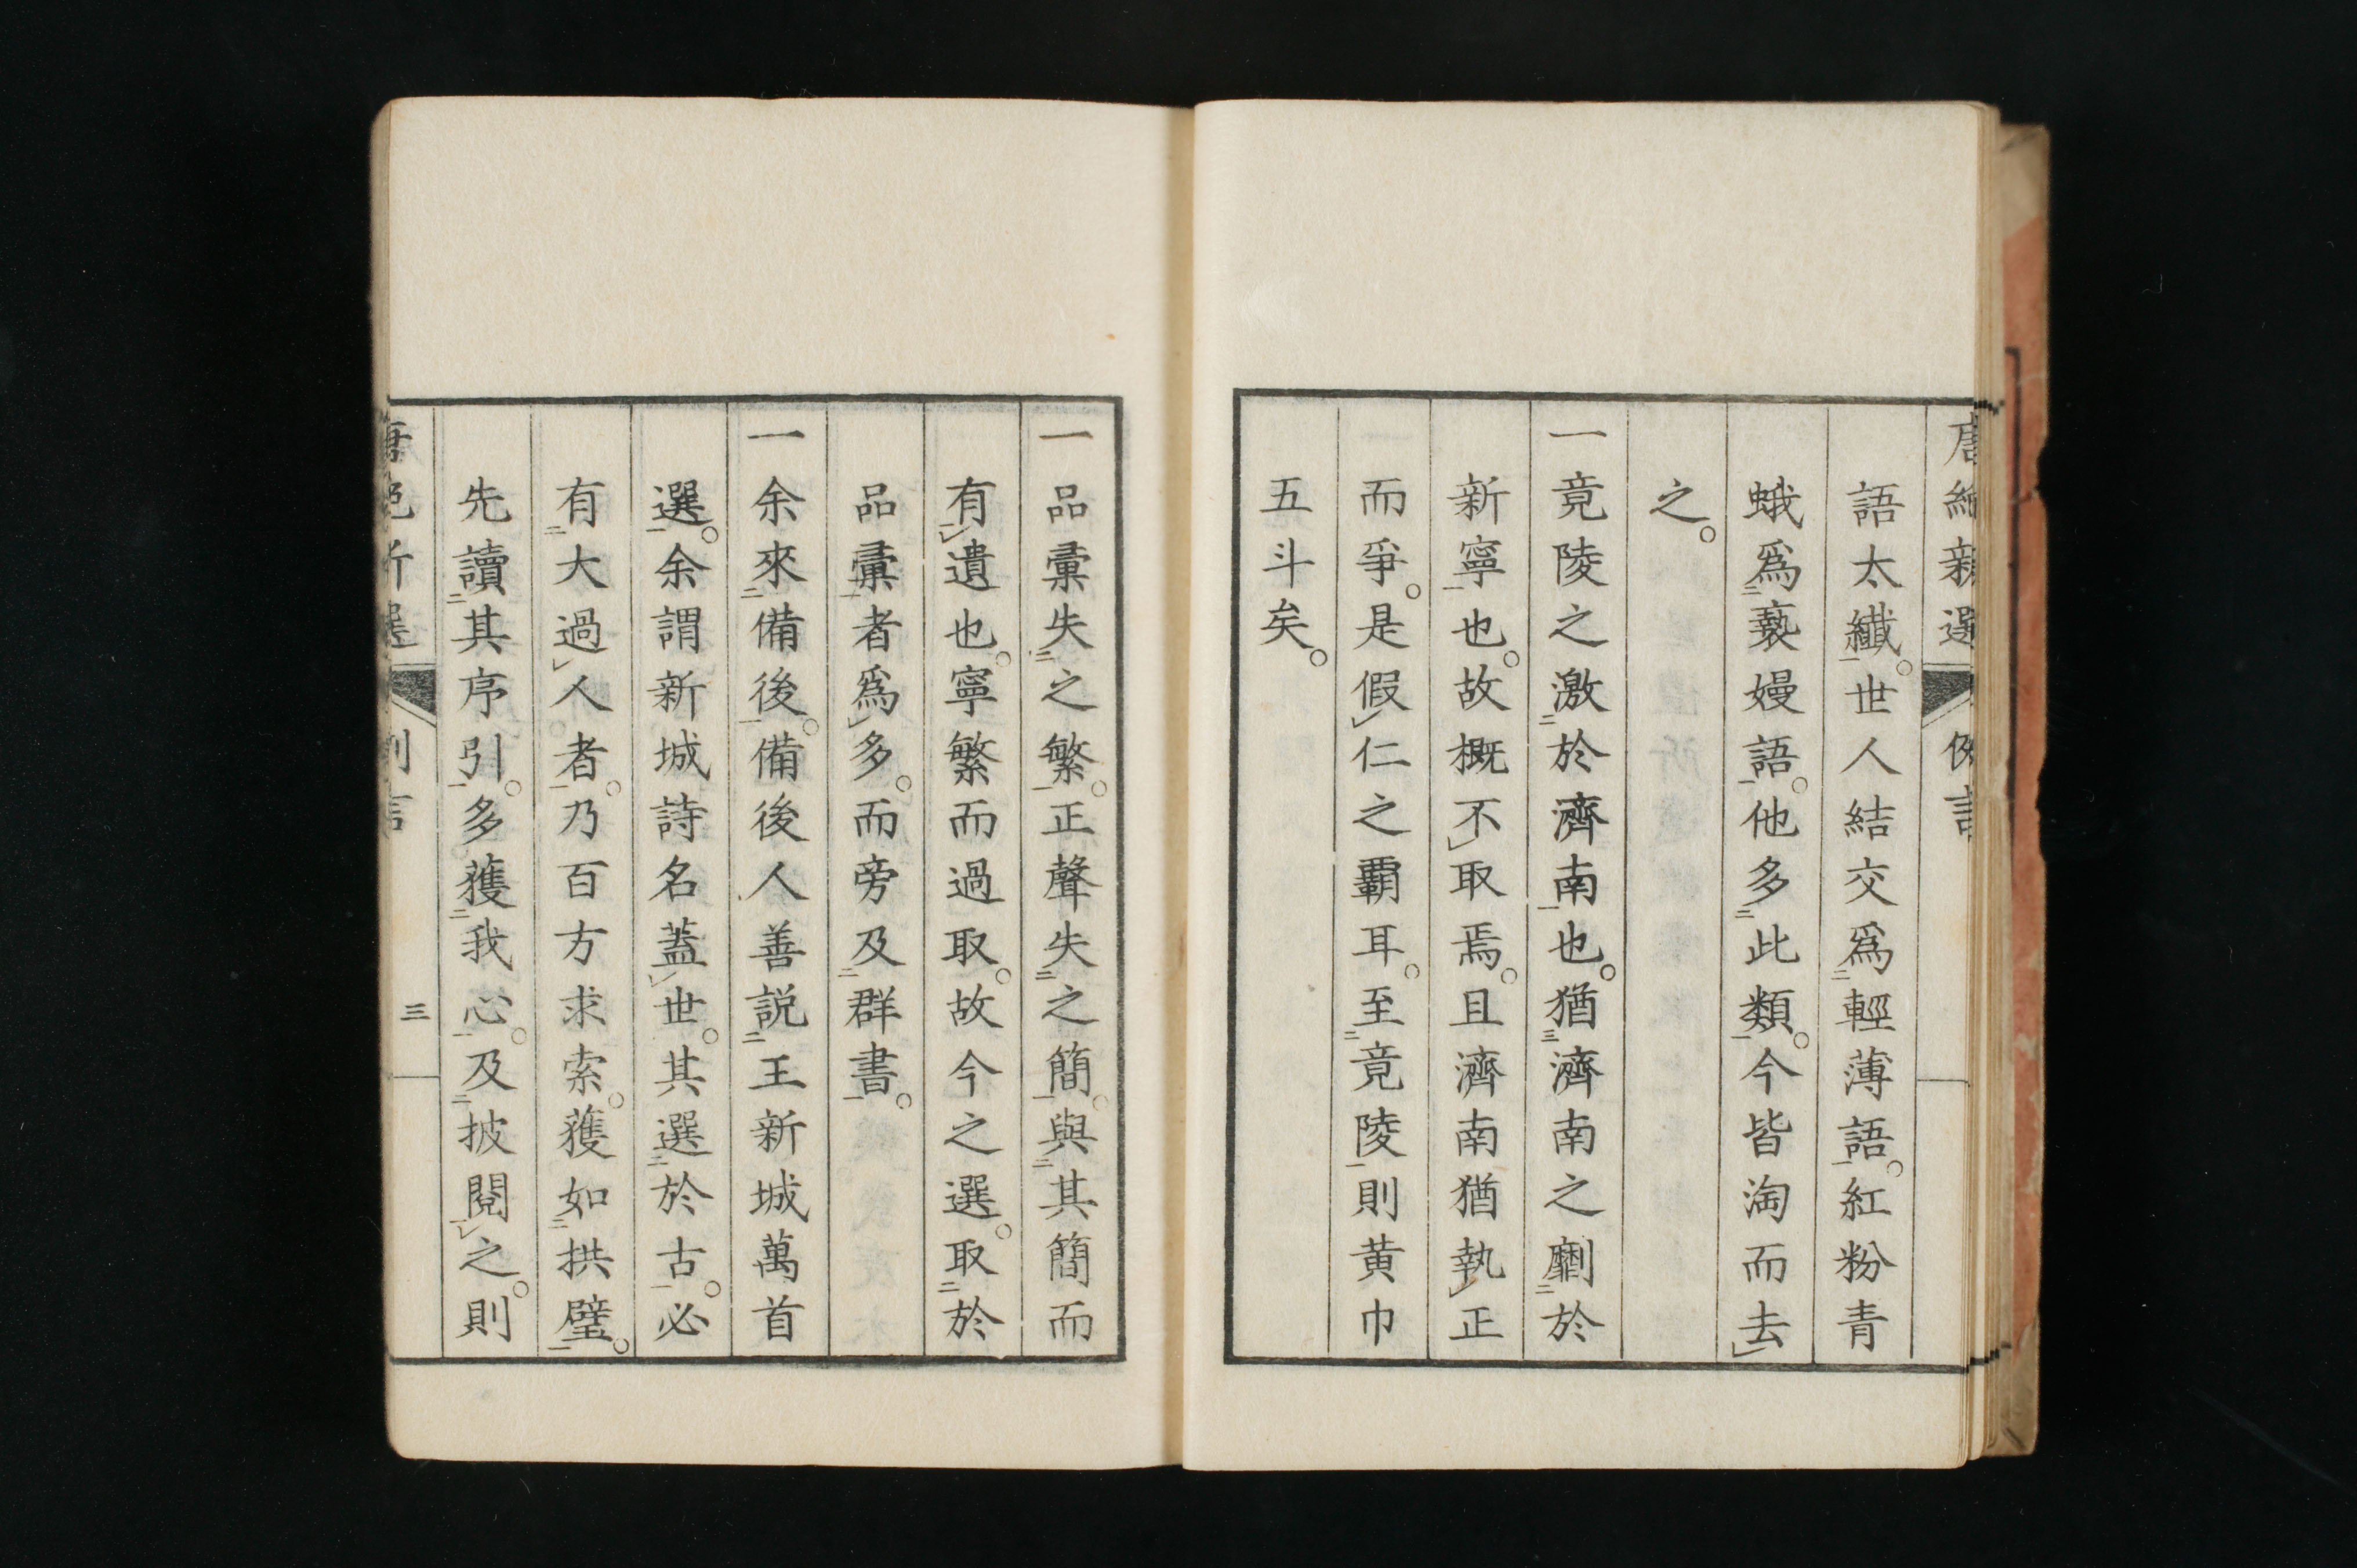 唐絕新選 例言
語太纖。世人結交爲輕薄語。紅粉青
蛾爲褻嫚語。他多此類。今皆淘而去
之。
一竟陵之激於濟南也。猶濟南之劘於
新寧也。故概不取焉。且濟南猶執正
而爭。是假仁之覇耳。至竟陵則黄巾
五斗矣。
一品彙失之繁。正聲失之簡。與其簡而
有遺也。寧繁而過取。故今之選。取於
品彙者爲多。而旁及群書。
一余來備後。備後人善説王新城萬首
選。余謂新城詩名蓋世。其選於古。必
有大過人者。乃百方求索。獲如拱璧。
先讀其序引。多獲我心。及披閱之。則
唐絕新選 例言 三